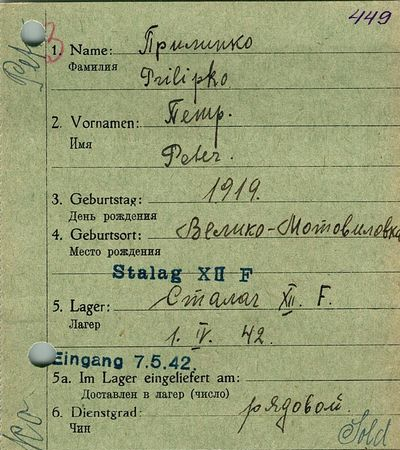 449
3
1. Name: Прилипко
Фамилия
Prilipko
2. Vornamen: Петр.
Имя
Peter.
3. Geburtstag: 1919.
День рождения
4. Geburtsort: Велико-Мотовиловка
Место рождения
Stalag XII F
5. Lager: Сталаг XII. F.
Лагер
1. IV. 42.
Eingang 7.5.42.
5a. Im Lager eingeliefert am:
Доставлен в лагер (число)
6. Dienstgrad: рядовой.
Чин
Sold